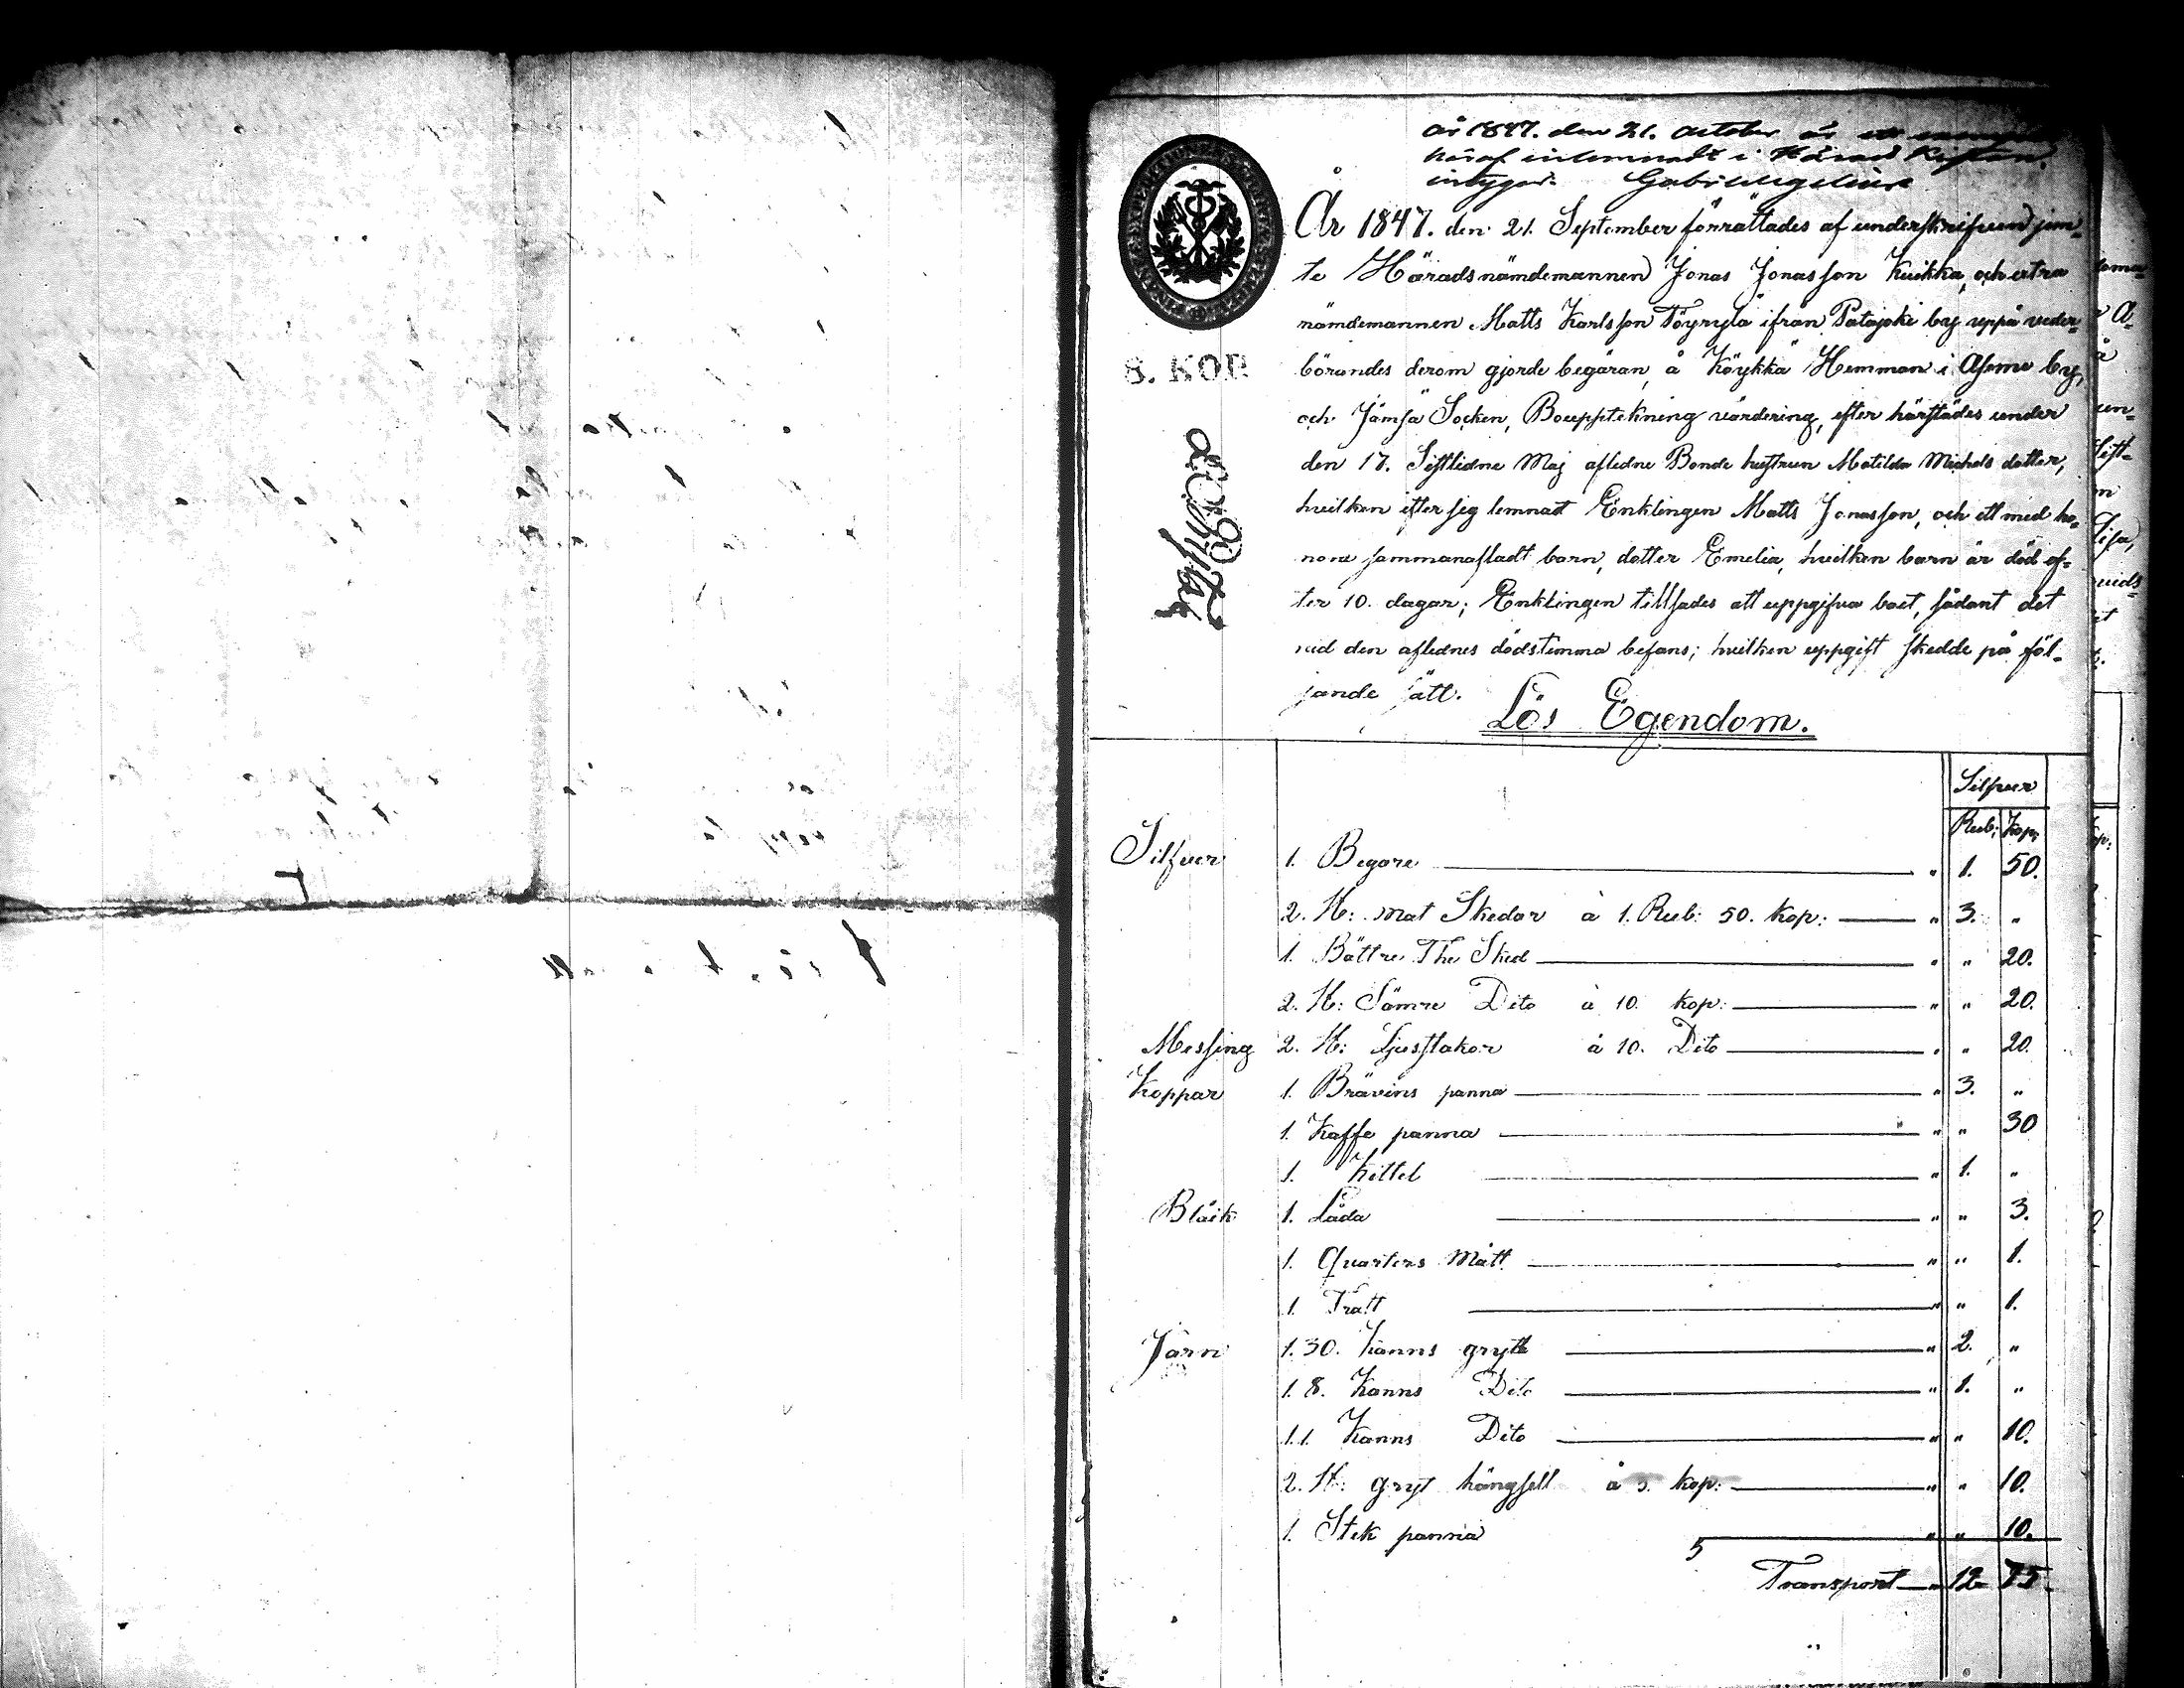 År 1847. den 21. October är ett exemplar
häraf inlemnadt i Härads Kistan,
intygar. Gabr: Ungelius
År 1847. den 21. September förrättades af underskrifven jem-
te Häradsnämdemannen Jonas Jonasson Kuikka, och extra
nämdemannen Matts Karlsson Töyrylä ifrån Patajoki by uppå veder-
börandes derom gjorde begäran, å Köykkä Hemman i Asemo by,
8. KOP.
och Jämsä Socken, Boupptekning värdering, efter härstädes under
den 17. Sistlidne Maj afledne Bonde hustrun Matilda Michels dotter,
hvilken efter sig lemnat Enklingen Matts Jonasson, och ett med ho-
nom sammanafladt barn, dotter Emelia, hvilken barn är död ef-
ter 10. dagar; Enklingen tillsades att uppgifva boet, sådant det
vid den aflednes dödstimma befans; hvilken uppgift skedde på föl-
jande sätt.
Lös Egendom.
Silfver
Rub: Kop:
Silfver 1. Begare " 1. 50.
2. St: mat Skedar à 1. Rub: 50. Kop: " 3. "
1. Bättre The Sked " " 20.
2. St: Sämre Dito à 10. kop: " " 20.
Messing 2. St: Ljusstakar à 10. Dito " " 20.
Koppar 1. Brävins panna " 3. "
1. Kaffe panna " " 30
1. Kittel " 1. "
Bläck 1. Låda " " 3.
1. Quarters Mått " " 1.
1. Tratt " " 1.
Järn 1. 30. Kanns gryta " 2. "
1. 8. Kanns Dito " 1. "
1. 1. Kanns Dito " " 10.
2. St: gryt hängsell à 5. kop: " " 10.
1. Stek panna " " 10.
5
Transport " 12 75.